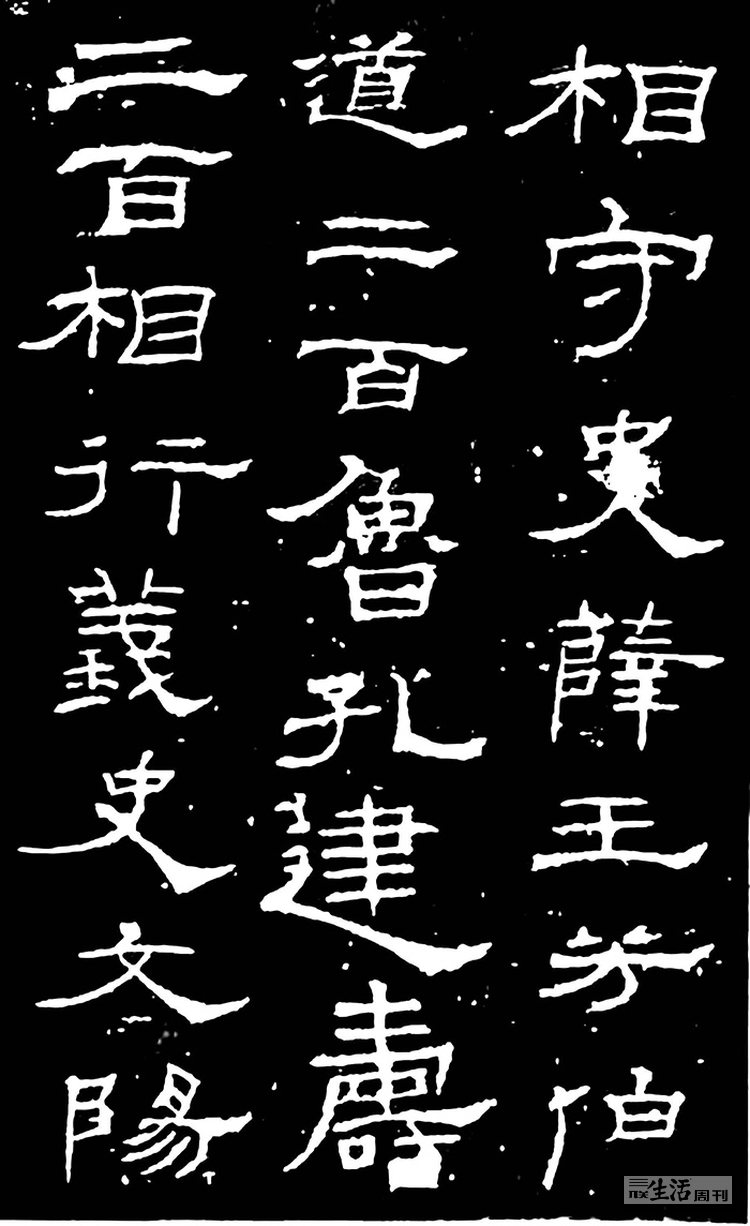 相守史薛王芳伯
道二百魯孔建壽
二百相行義史文陽
三联生活周刊